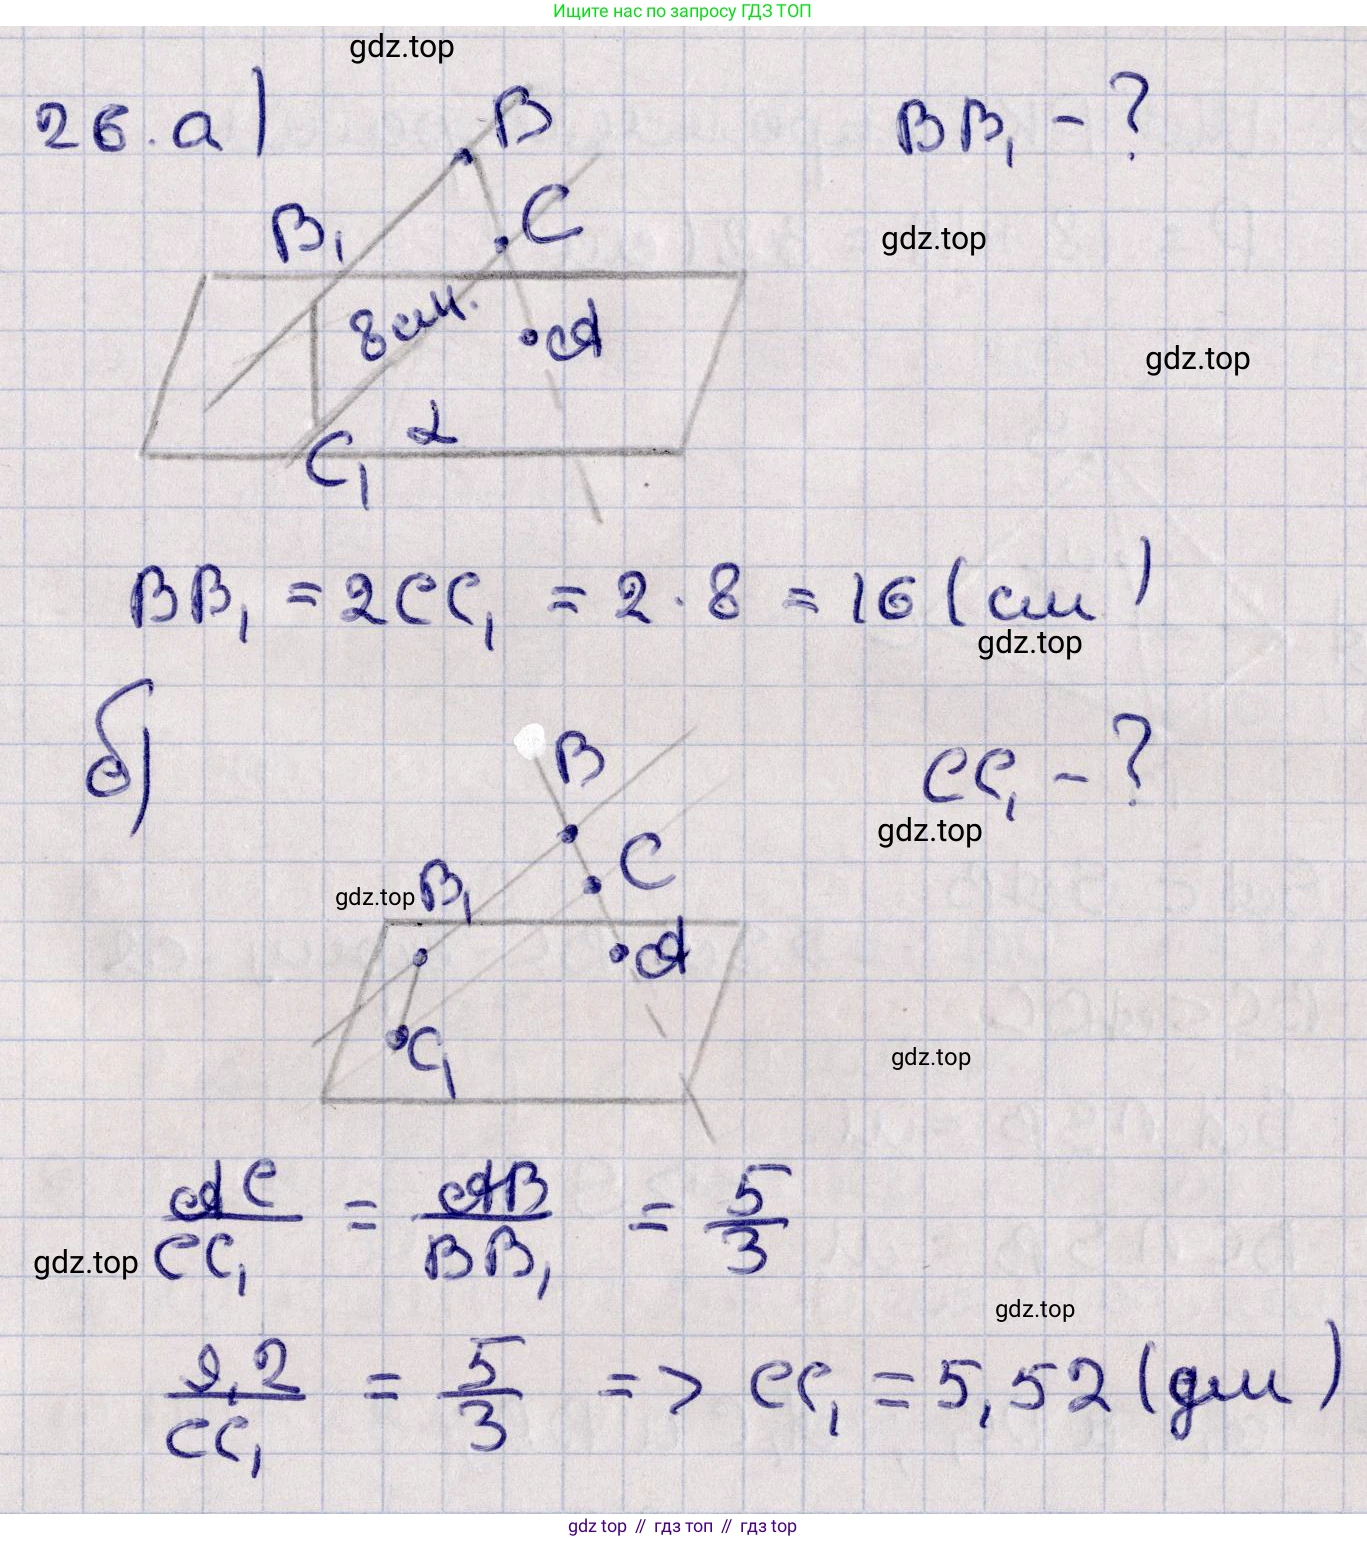 Ищите нас по запросу ГДЗ ТОП
gdz.top
26. а)
B
BB₁ - ?
B₁
C
gdz.top
8 см.
A
gdz.top
α
C₁
BB₁ = 2CC₁ = 2 · 8 = 16 (см)
gdz.top
б)
B
CC₁ - ?
gdz.top
C
gdz.top
B₁
A
C₁
gdz.top
AC/CC₁ = AB/BB₁ = 5/3
gdz.top
gdz.top
9,2/CC₁ = 5/3 => CC₁ = 5,52 (дм)
gdz top // гдз топ // gdz top